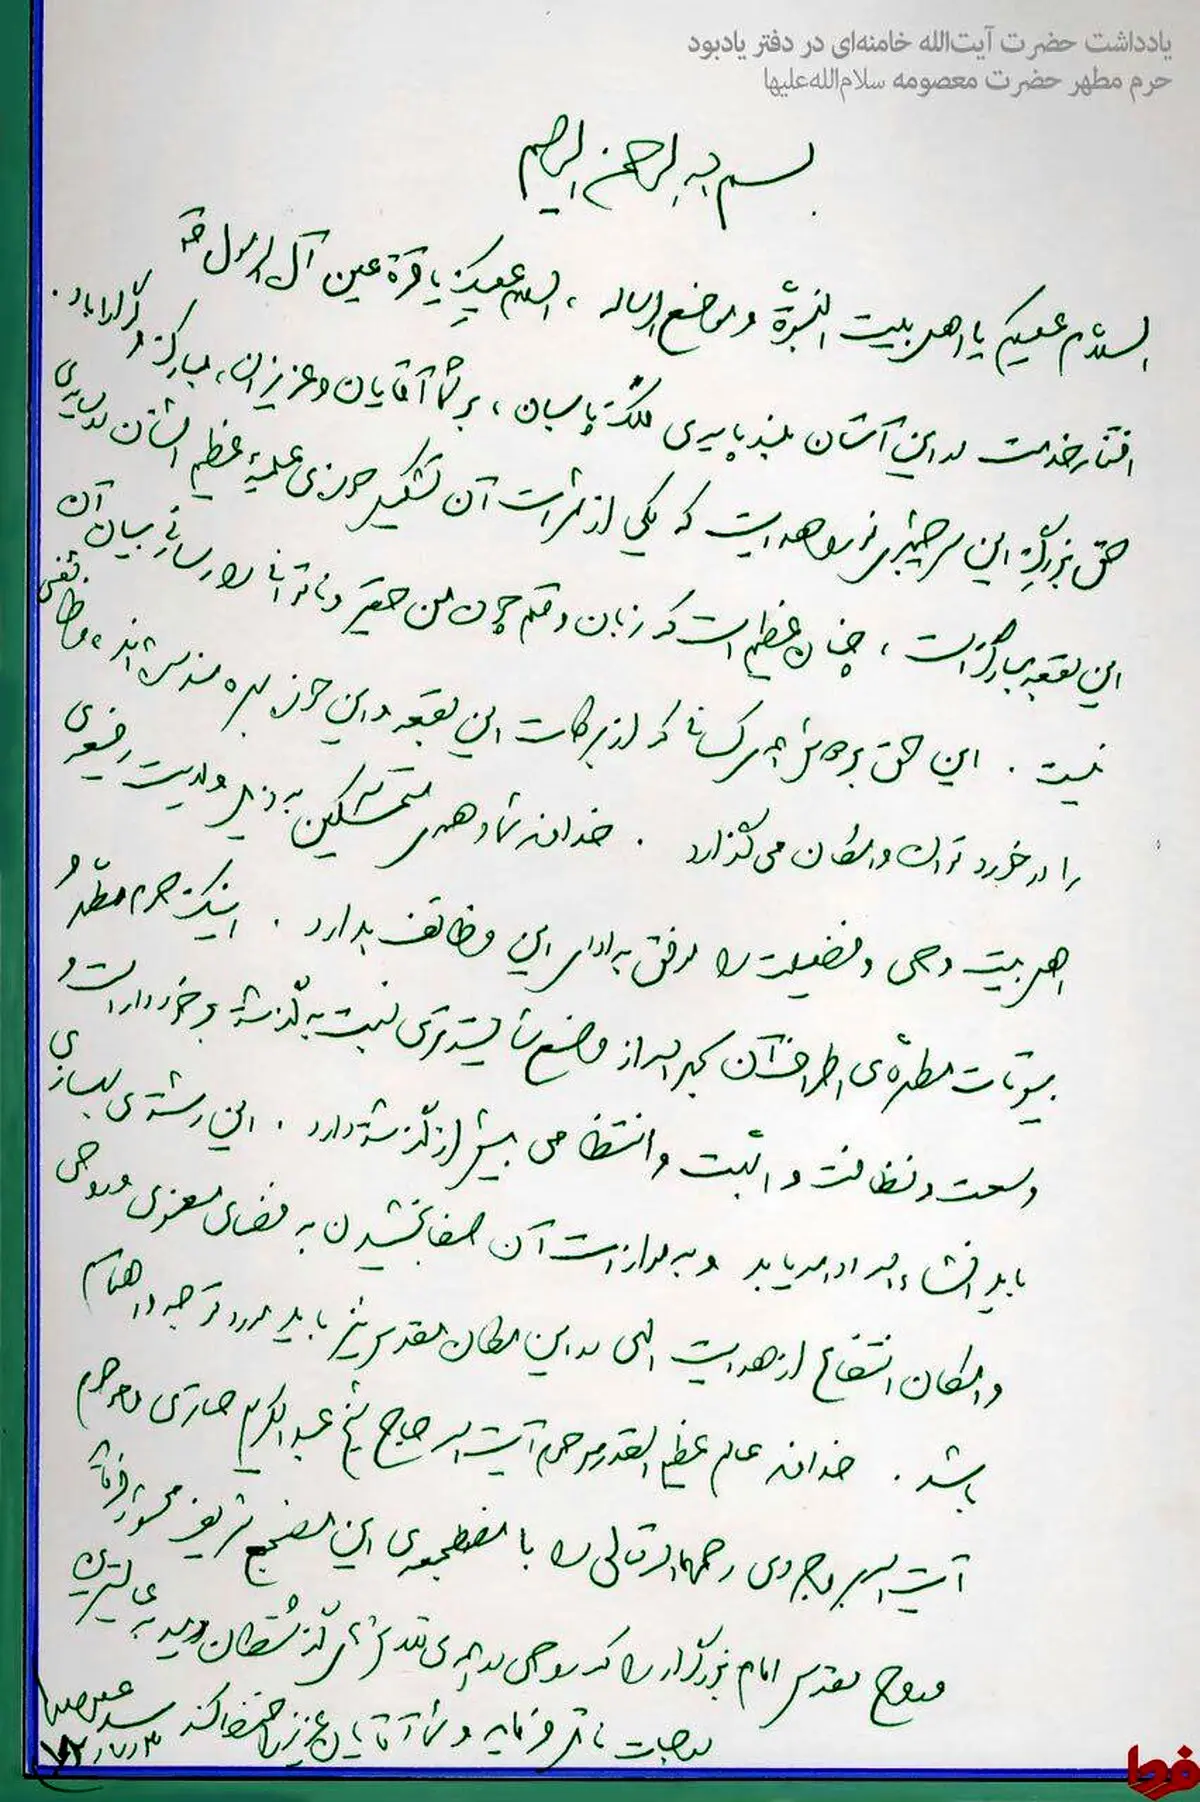 یادداشت حضرت آیت‌الله خامنه‌ای در دفتر یادبود
حرم مطهر حضرت معصومه سلام‌الله‌علیها
بسم الله الرحمن الرحیم
السلام علیکم یا اهل بیت النبوّة و موضع الرساله ، السلام علیکِ یا قرة عین آل الرسول
افتخار خدمت در این آستان بلند پایه‌ی ملک پاسبان ، بر شما آقایان و عزیزان ، مبارک و گوارا باد .
حق بزرگ این سرچشمه‌ی نور و هدایت که یکی از ثمرات آن تشکیل حوزه‌ی علمیهٔ عظیم الشأن در
این بقعه‌ی مبارک است ، چنان عظیم است که زبان و قلم چون من حقیر و ناتوانا را رسائیِ بیان آن
نیست . این حق بر دوش همه‌ی کسانی که از برکات این بقعه و این حوزه بهره‌مند شده‌اند ، وظائفی
را در خورد توان و امکان می‌گذارد . خداوند شما و همه‌ی متمسّکین به ذیل ولایت رضوی
اهل بیت وحی و فضیلت را موفق به ادای این وظائف بدارد . اینک حرم مطهّر و
بیوتات مطهره‌ی اطراف آن بحمد الله از وضع شایسته‌تری نسبت به گذشته برخوردار است و
وسعت و نظافت و ابّهت و انتظامی بیش از گذشته دارد . این رشته‌ی بهسازی
باید انشاءالله ادامه یابد و به موازات آن صفا بخشیدن به فضای معنوی و روحی
و امکان انتفاع از هدایت الهی در این مکان مقدس نیز باید مورد توجه و اهتمام
باشد . خداوند عالم عظیم القدر مرحوم آیت الله حاج شیخ عبدالکریم حائری و مرحوم
آیت الله بروجردی رحمهما الله تعالی را با مضطجعه‌ی این مضجع شریف محشور فرماید
و روح مقدس امام بزرگوار را که روحی در همه‌ی گذشتگان دمید به عالیترین
درجات نائل فرماید و شما آقایان عزیز را حفظ کند
سید علی خامنه‌ای